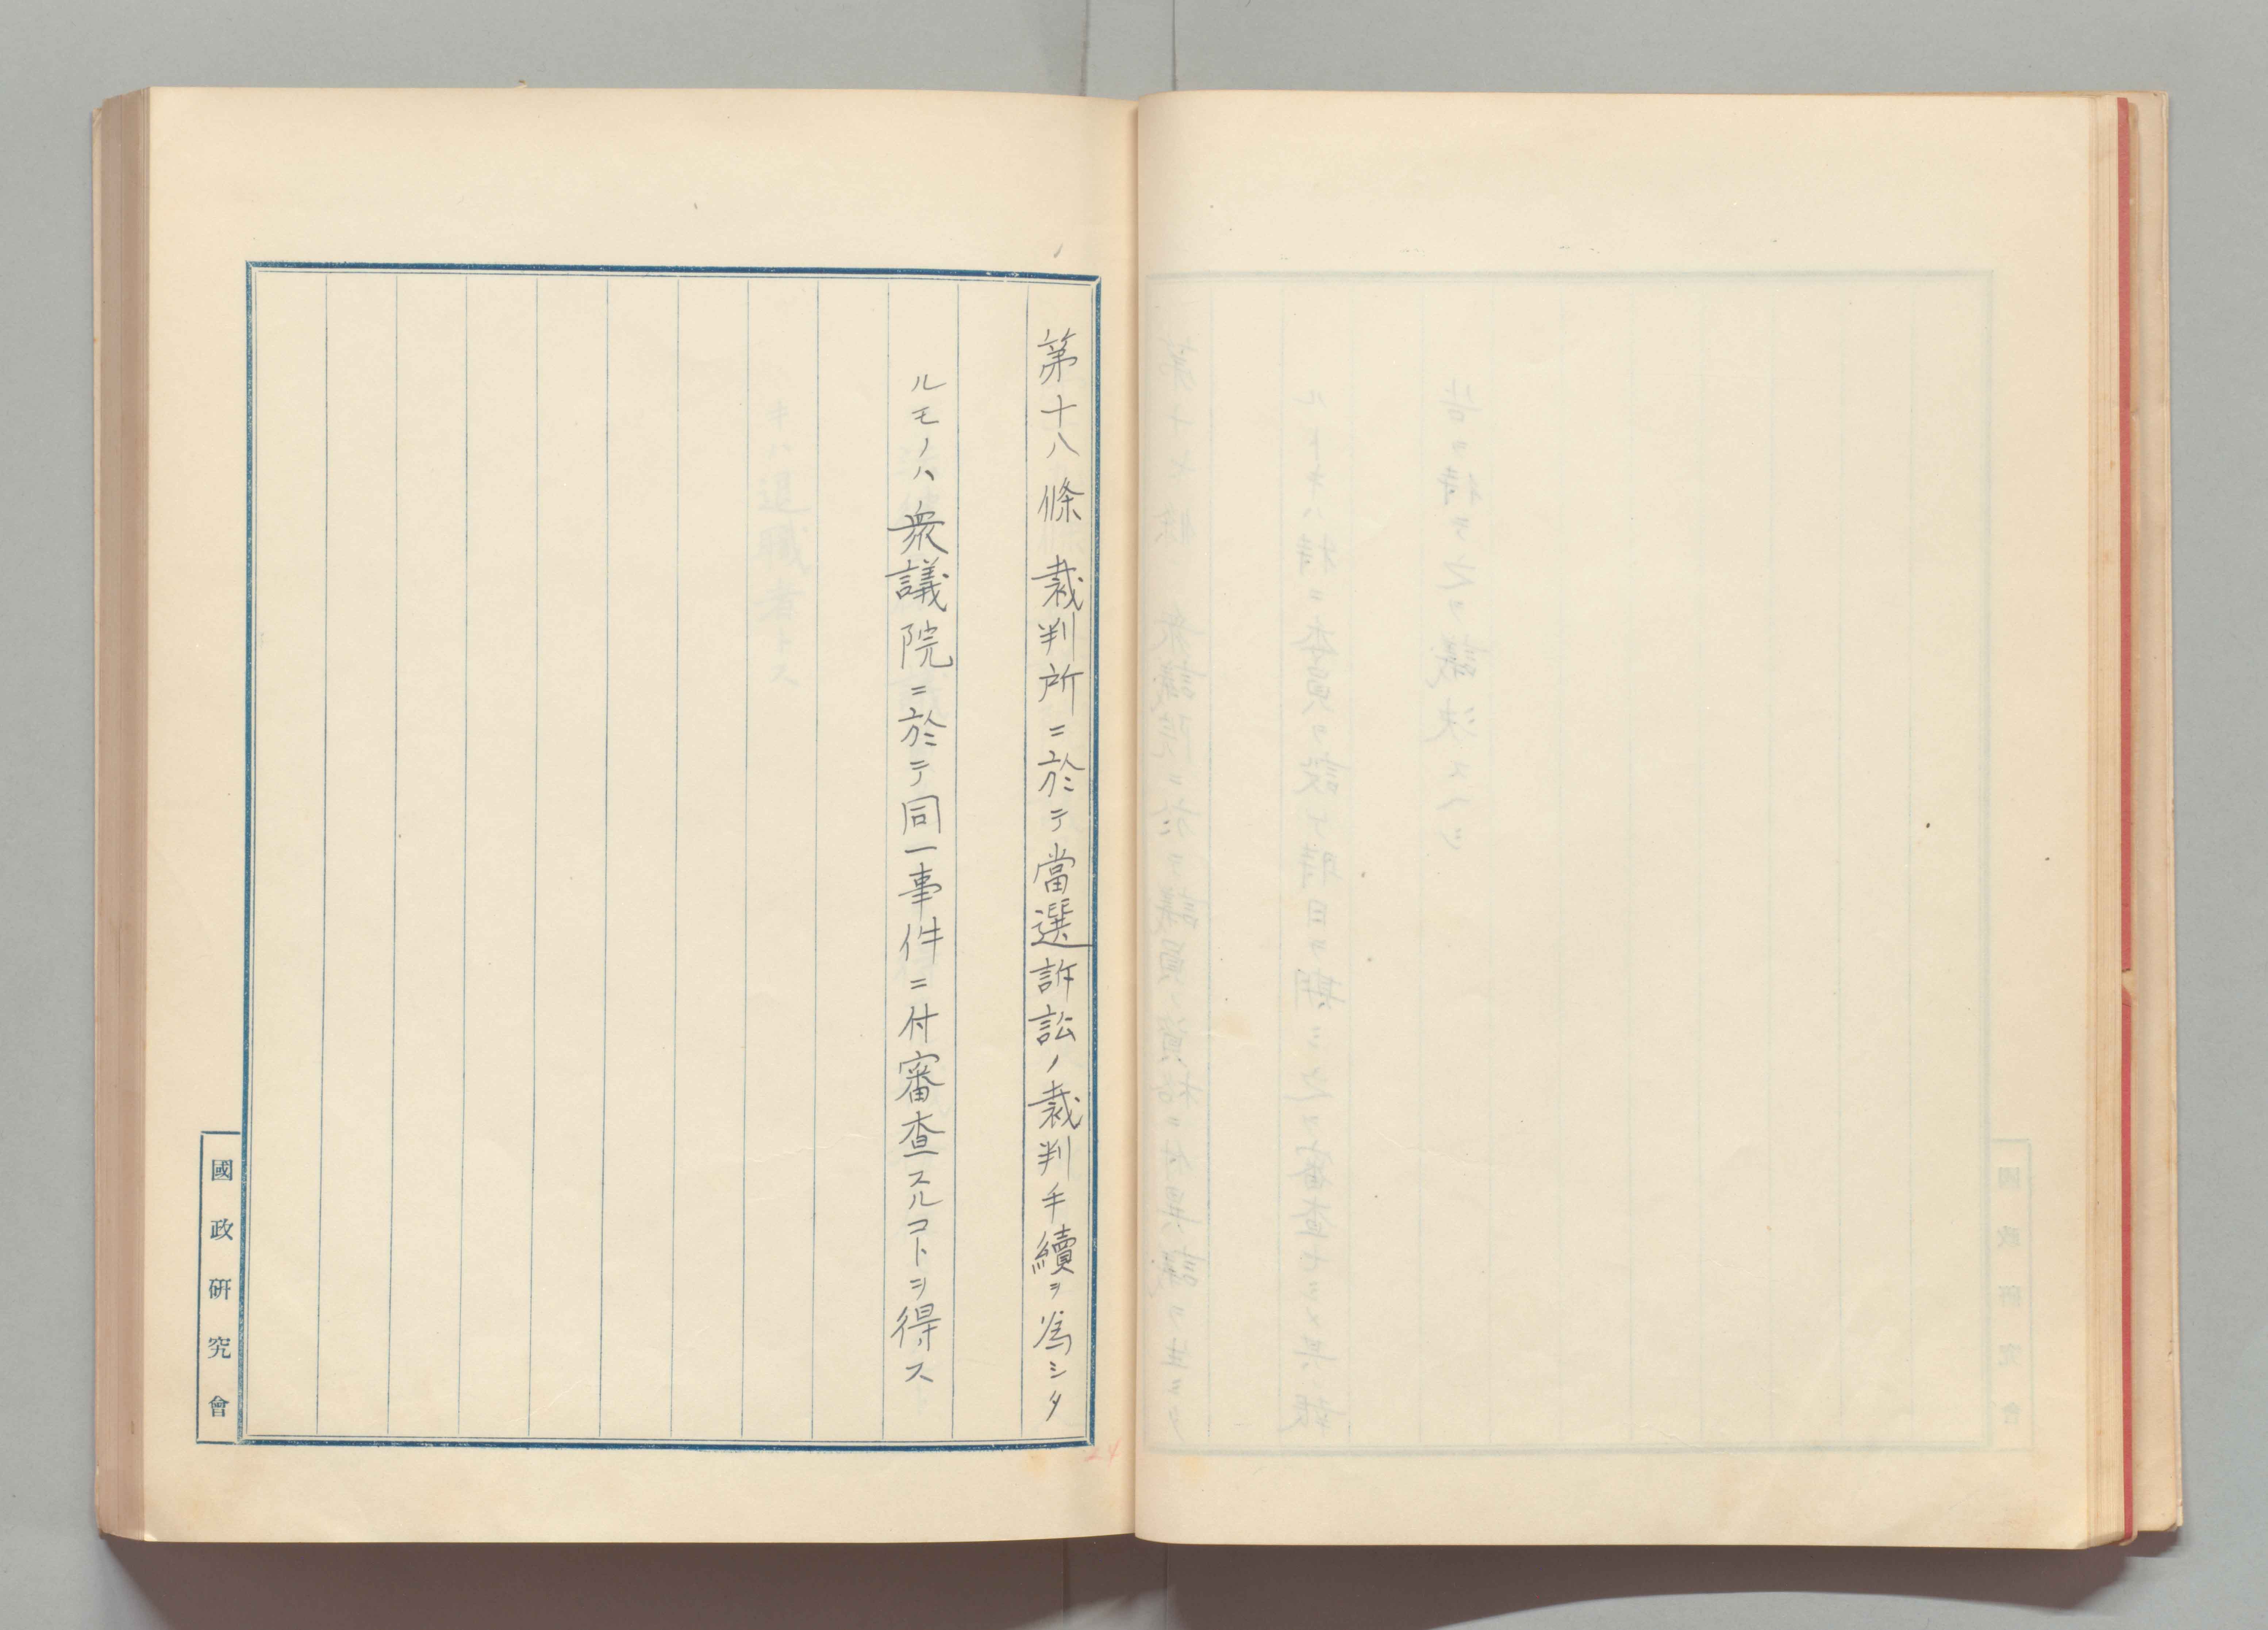 第十八條 裁判所ニ於テ當選訴訟ノ裁判手續ヲ爲シタ
ルモノハ衆議院ニ於テ同一事件ニ付審査スルコトヲ得ス
國政硏究會
24